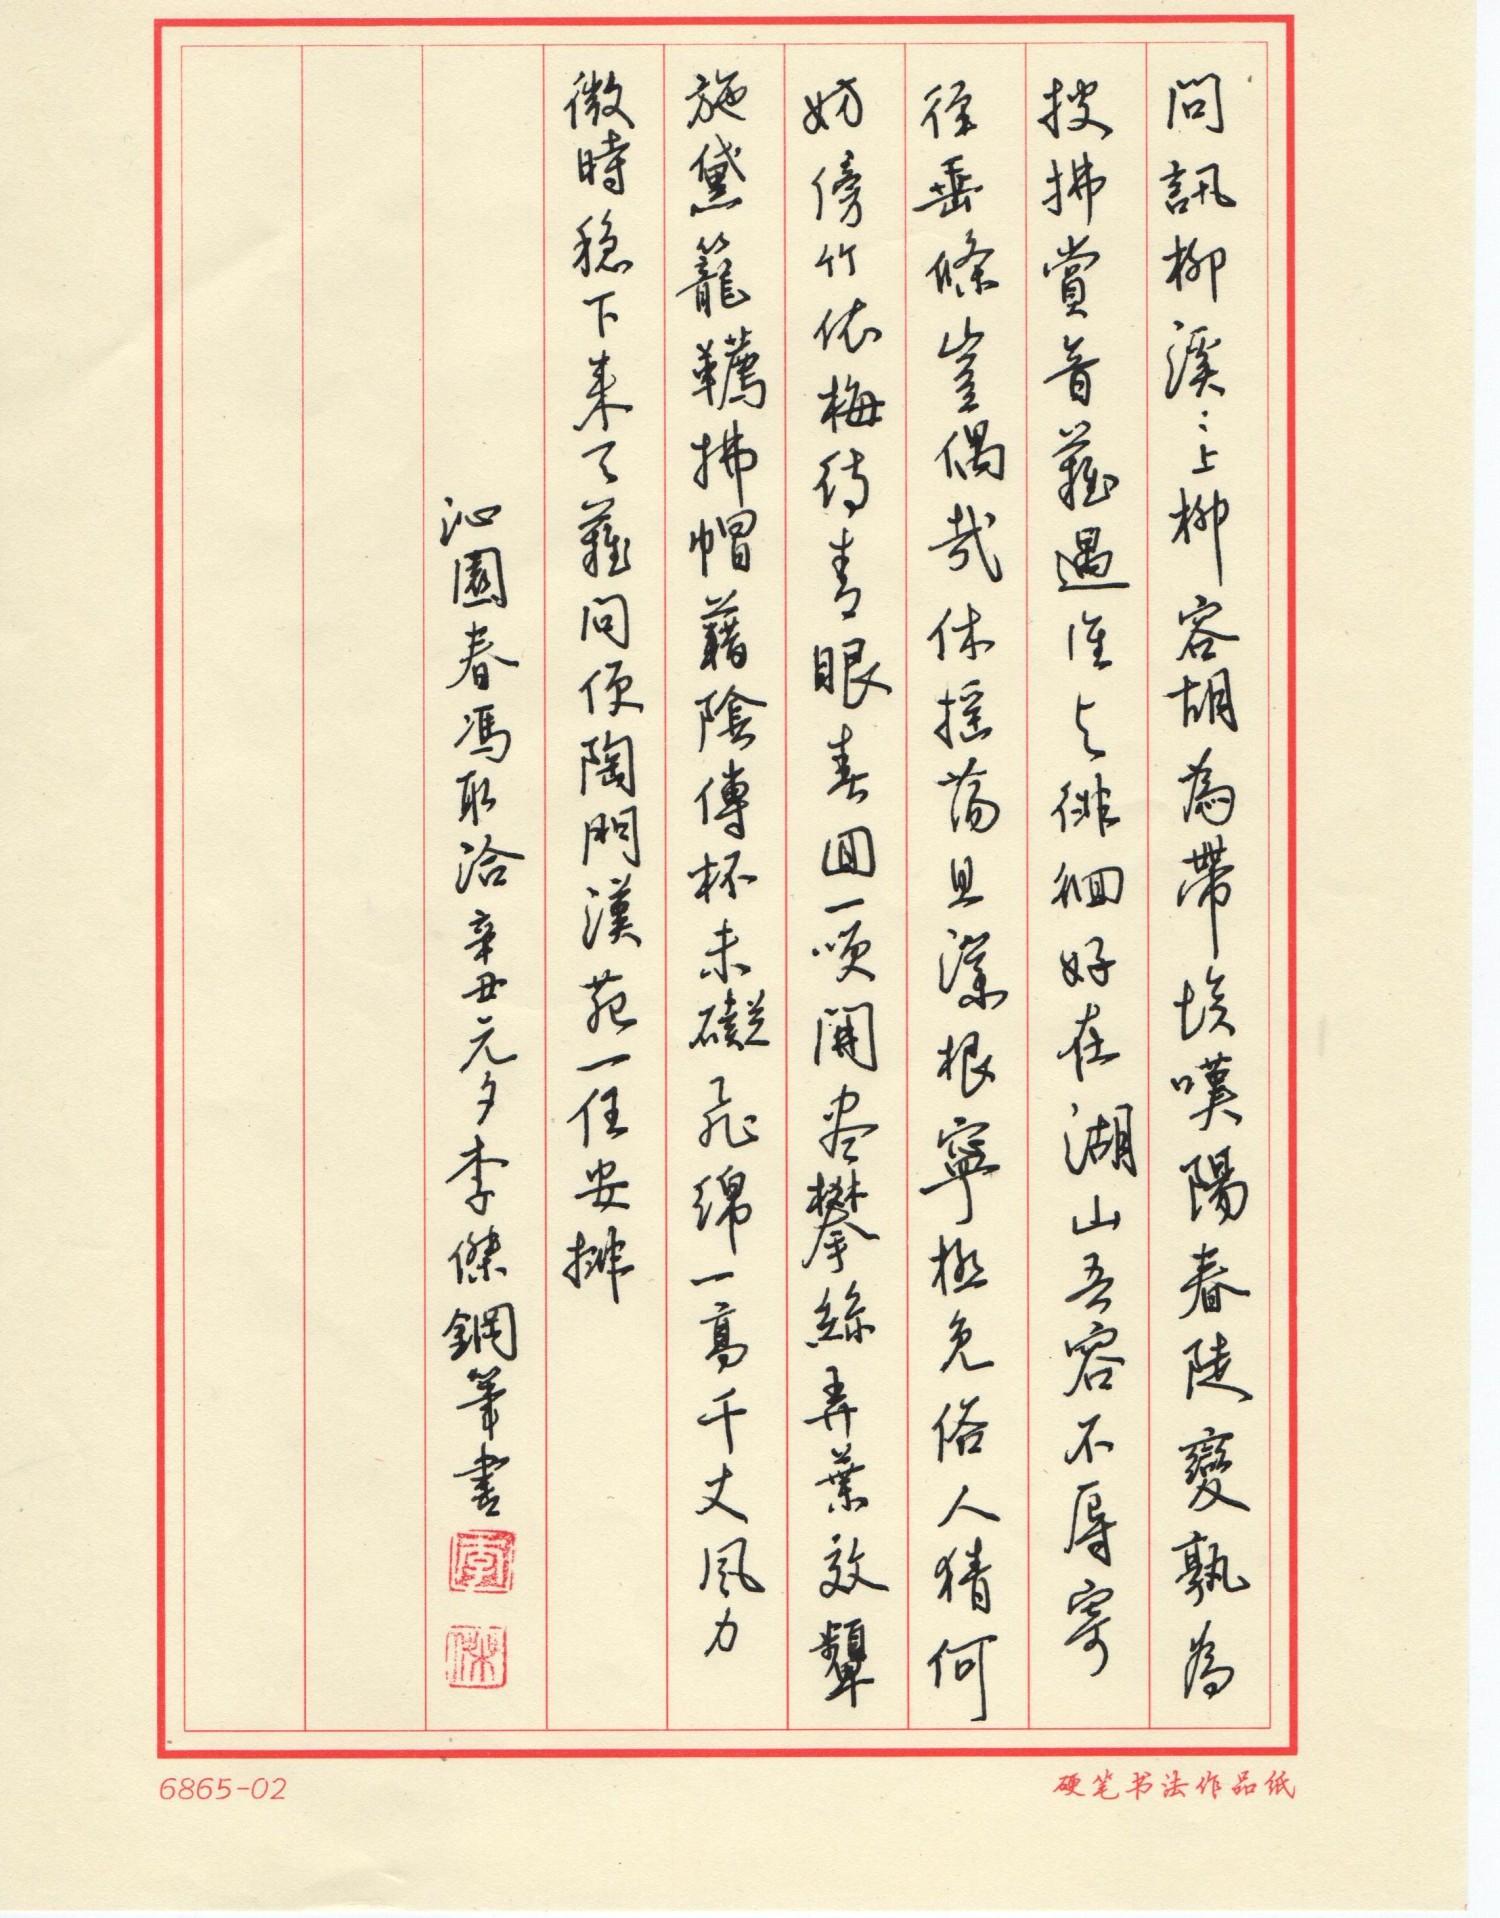 問訊柳溪〻上柳容胡為帶埃嘆陽春陡變孰為
披拂賞音難遇誰与徘徊好在湖山吾容不辱寄
徑垂條豈偶哉休搖蕩且深根寧極免俗人猜何
妨傍竹依梅待青眼春回一咲開尽攀絲弄葉效顰
施黛籠韉拂帽藉陰傳杯未礙飛綿一高千丈風力
微時穩下來天難問便陶門漢苑一任安排
沁園春馮取洽辛丑元夕李傑鋼筆書
李
傑
6865-02
硬笔书法作品纸